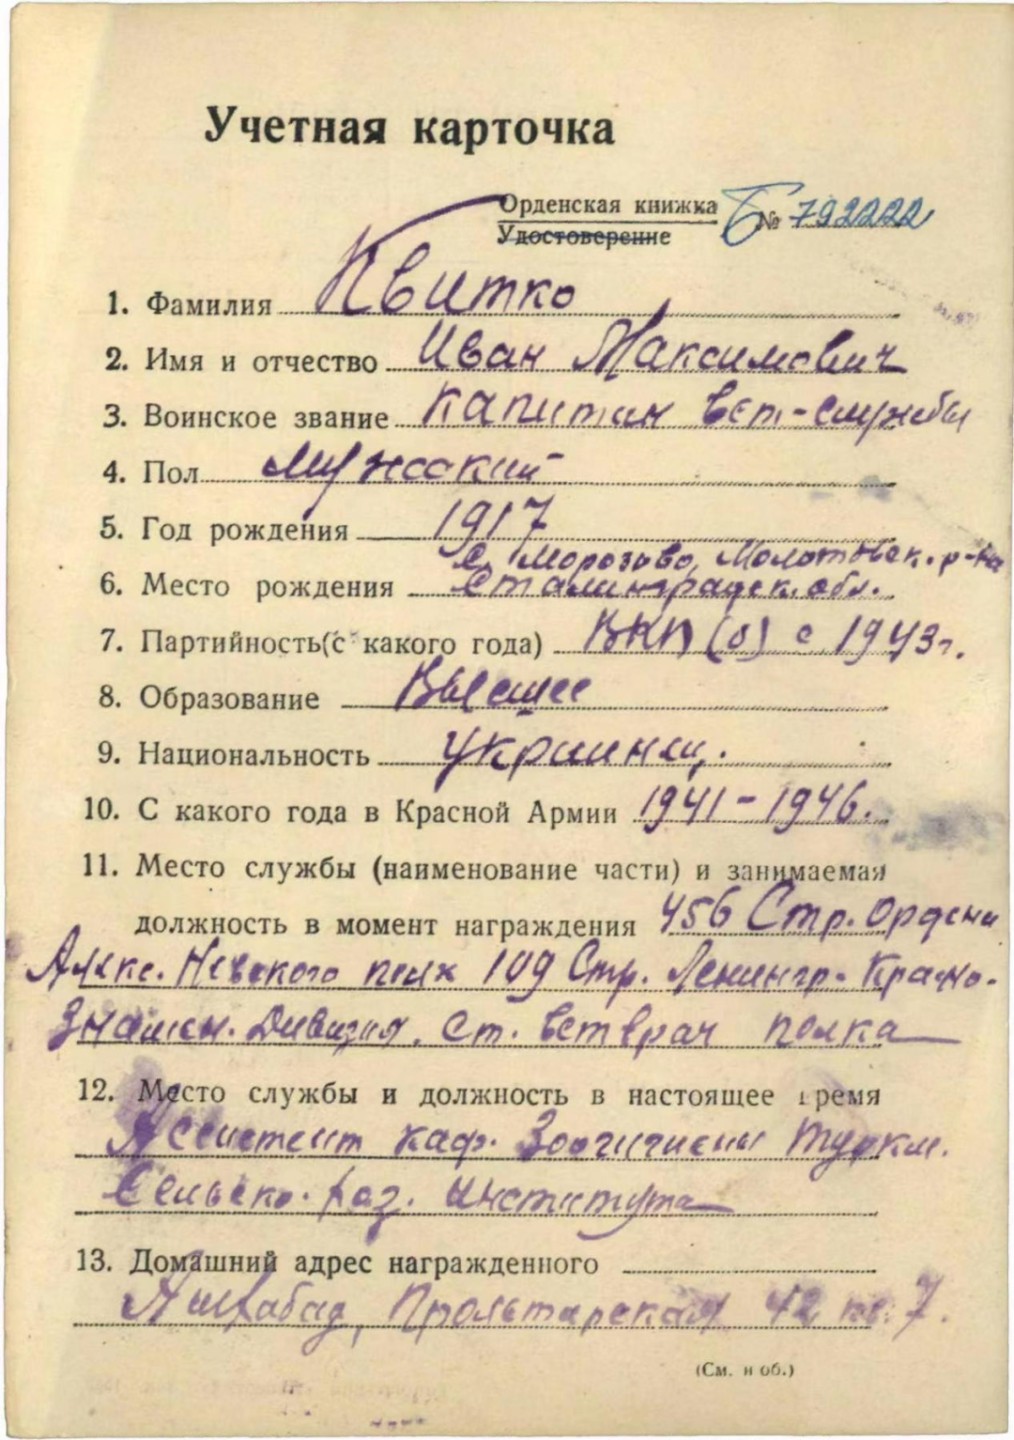 Учетная карточка
Орденская книжка Б № 792222
Удостоверение
1. Фамилия Квитко
2. Имя и отчество Иван Максимович
3. Воинское звание капитан вет-службы
4. Пол мужской
5. Год рождения 1917
с. Морозово, Молотовск. р-на
6. Место рождения Сталинградск. обл.
7. Партийность (с какого года) ВКП(б) с 1943 г.
8. Образование Высшее
9. Национальность украинец.
10. С какого года в Красной Армии 1941-1946.
11. Место службы (наименование части) и занимаемая
должность в момент награждения 456 Стр. Ордена
Алекс. Невского полк 109 Стр. Ленингр. Красно-
знамен. Дивизия. Ст. ветврач полка
12. Место службы и должность в настоящее время
Ассистент каф. Зоогигиены Туркм.
Сельско-хоз. института
13. Домашний адрес награжденного
Ашхабад, Пролетарская 42 кв. 7.
(См. н об.)